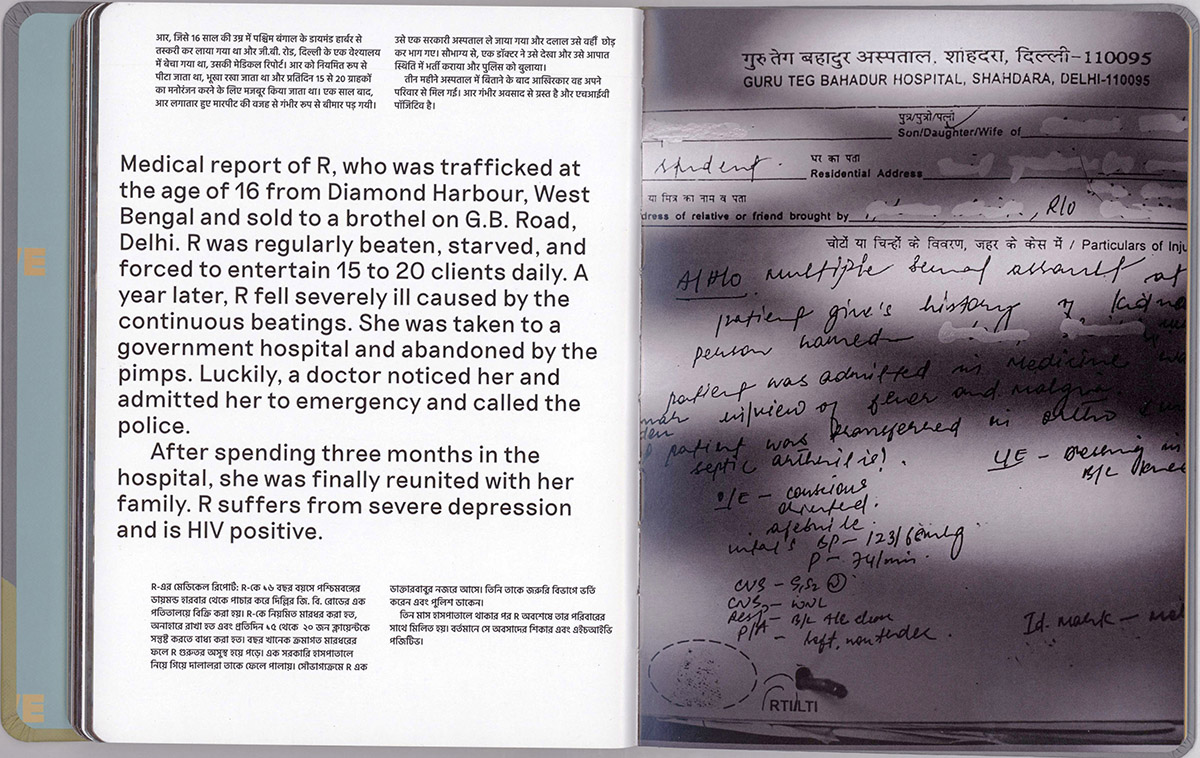 आर, जिसे 16 साल की उम्र में पश्चिम बंगाल के डायमंड हार्बर से
तस्करी कर लाया गया था और जी.बी. रोड, दिल्ली के एक वेश्यालय
में बेचा गया था, उसकी मेडिकल रिपोर्ट। आर को नियमित रूप से
पीटा जाता था, भूखा रखा जाता था और प्रतिदिन 15 से 20 ग्राहकों
का मनोरंजन करने के लिए मजबूर किया जाता था। एक साल बाद,
आर लगातार हुए मारपीट की वजह से गंभीर रूप से बीमार पड़ गयी।
उसे एक सरकारी अस्पताल ले जाया गया और दलाल उसे वहीं छोड़
कर भाग गए। सौभाग्य से, एक डॉक्टर ने उसे देखा और उसे आपात
स्थिति में भर्ती कराया और पुलिस को बुलाया।
तीन महीने अस्पताल में बिताने के बाद आखिरकार वह अपने
परिवार से मिल गई। आर गंभीर अवसाद से ग्रस्त है और एचआईवी
पॉजिटिव है।
Medical report of R, who was trafficked at
the age of 16 from Diamond Harbour, West
Bengal and sold to a brothel on G.B. Road,
Delhi. R was regularly beaten, starved, and
forced to entertain 15 to 20 clients daily. A
year later, R fell severely ill caused by the
continuous beatings. She was taken to a
government hospital and abandoned by the
pimps. Luckily, a doctor noticed her and
admitted her to emergency and called the
police.
After spending three months in the
hospital, she was finally reunited with her
family. R suffers from severe depression
and is HIV positive.
R-এর মেডিকেল রিপোর্ট: R-কে ১৬ বছর বয়সে পশ্চিমবঙ্গের
ডায়মন্ড হারবার থেকে পাচার করে দিল্লির জি. বি. রোডের এক
পতিতালয়ে বিক্রি করা হয়। R-কে নিয়মিত মারধর করা হত,
অনাহারে রাখা হত এবং প্রতিদিন ১৫ থেকে ২০ জন ক্লায়েন্টকে
সন্তুষ্ট করতে বাধ্য করা হত। বছর খানেক ক্রমাগত মারধরের
ফলে R গুরুতর অসুস্থ হয়ে পড়ে। এক সরকারি হাসপাতালে
নিয়ে গিয়ে দালালরা তাকে ফেলে পালায়। সৌভাগ্যক্রমে R এক
ডাক্তারবাবুর নজরে আসে। তিনি তাকে জরুরি বিভাগে ভর্তি
করেন এবং পুলিশ ডাকেন।
তিন মাস হাসপাতালে থাকার পর R অবশেষে তার পরিবারের
সাথে মিলিত হয়। বর্তমানে সে অবসাদের শিকার এবং এইচআইভি
পজিটিভ।
गुरु तेग बहादुर अस्पताल, शाहदरा, दिल्ली-110095
GURU TEG BAHADUR HOSPITAL, SHAHDARA, DELHI-110095
पुत्र/पुत्री/पत्नी
Son/Daughter/Wife of
Student
घर का पता
Residential Address
या मित्र का नाम व पता
dress of relative or friend brought by R/O
चोटों या चिन्हों के विवरण, जहर के केस में / Particulars of Inju
A/H/O multiple sexual assault at
patient give's history of kidna
person named
patient was admitted in Medicine
in/view of fever and
patient was transferred in ortho
septic arthritis!
L/E - Dressing in
B/L knee
O/E - conscious
oriented
afebrile
vital's BP - 123/68mmHg
P - 74/min.
CVS - S1S2
CNS - WNL
Resp - B/L AE clear
P/A - soft, nontender.
RTI/LTI